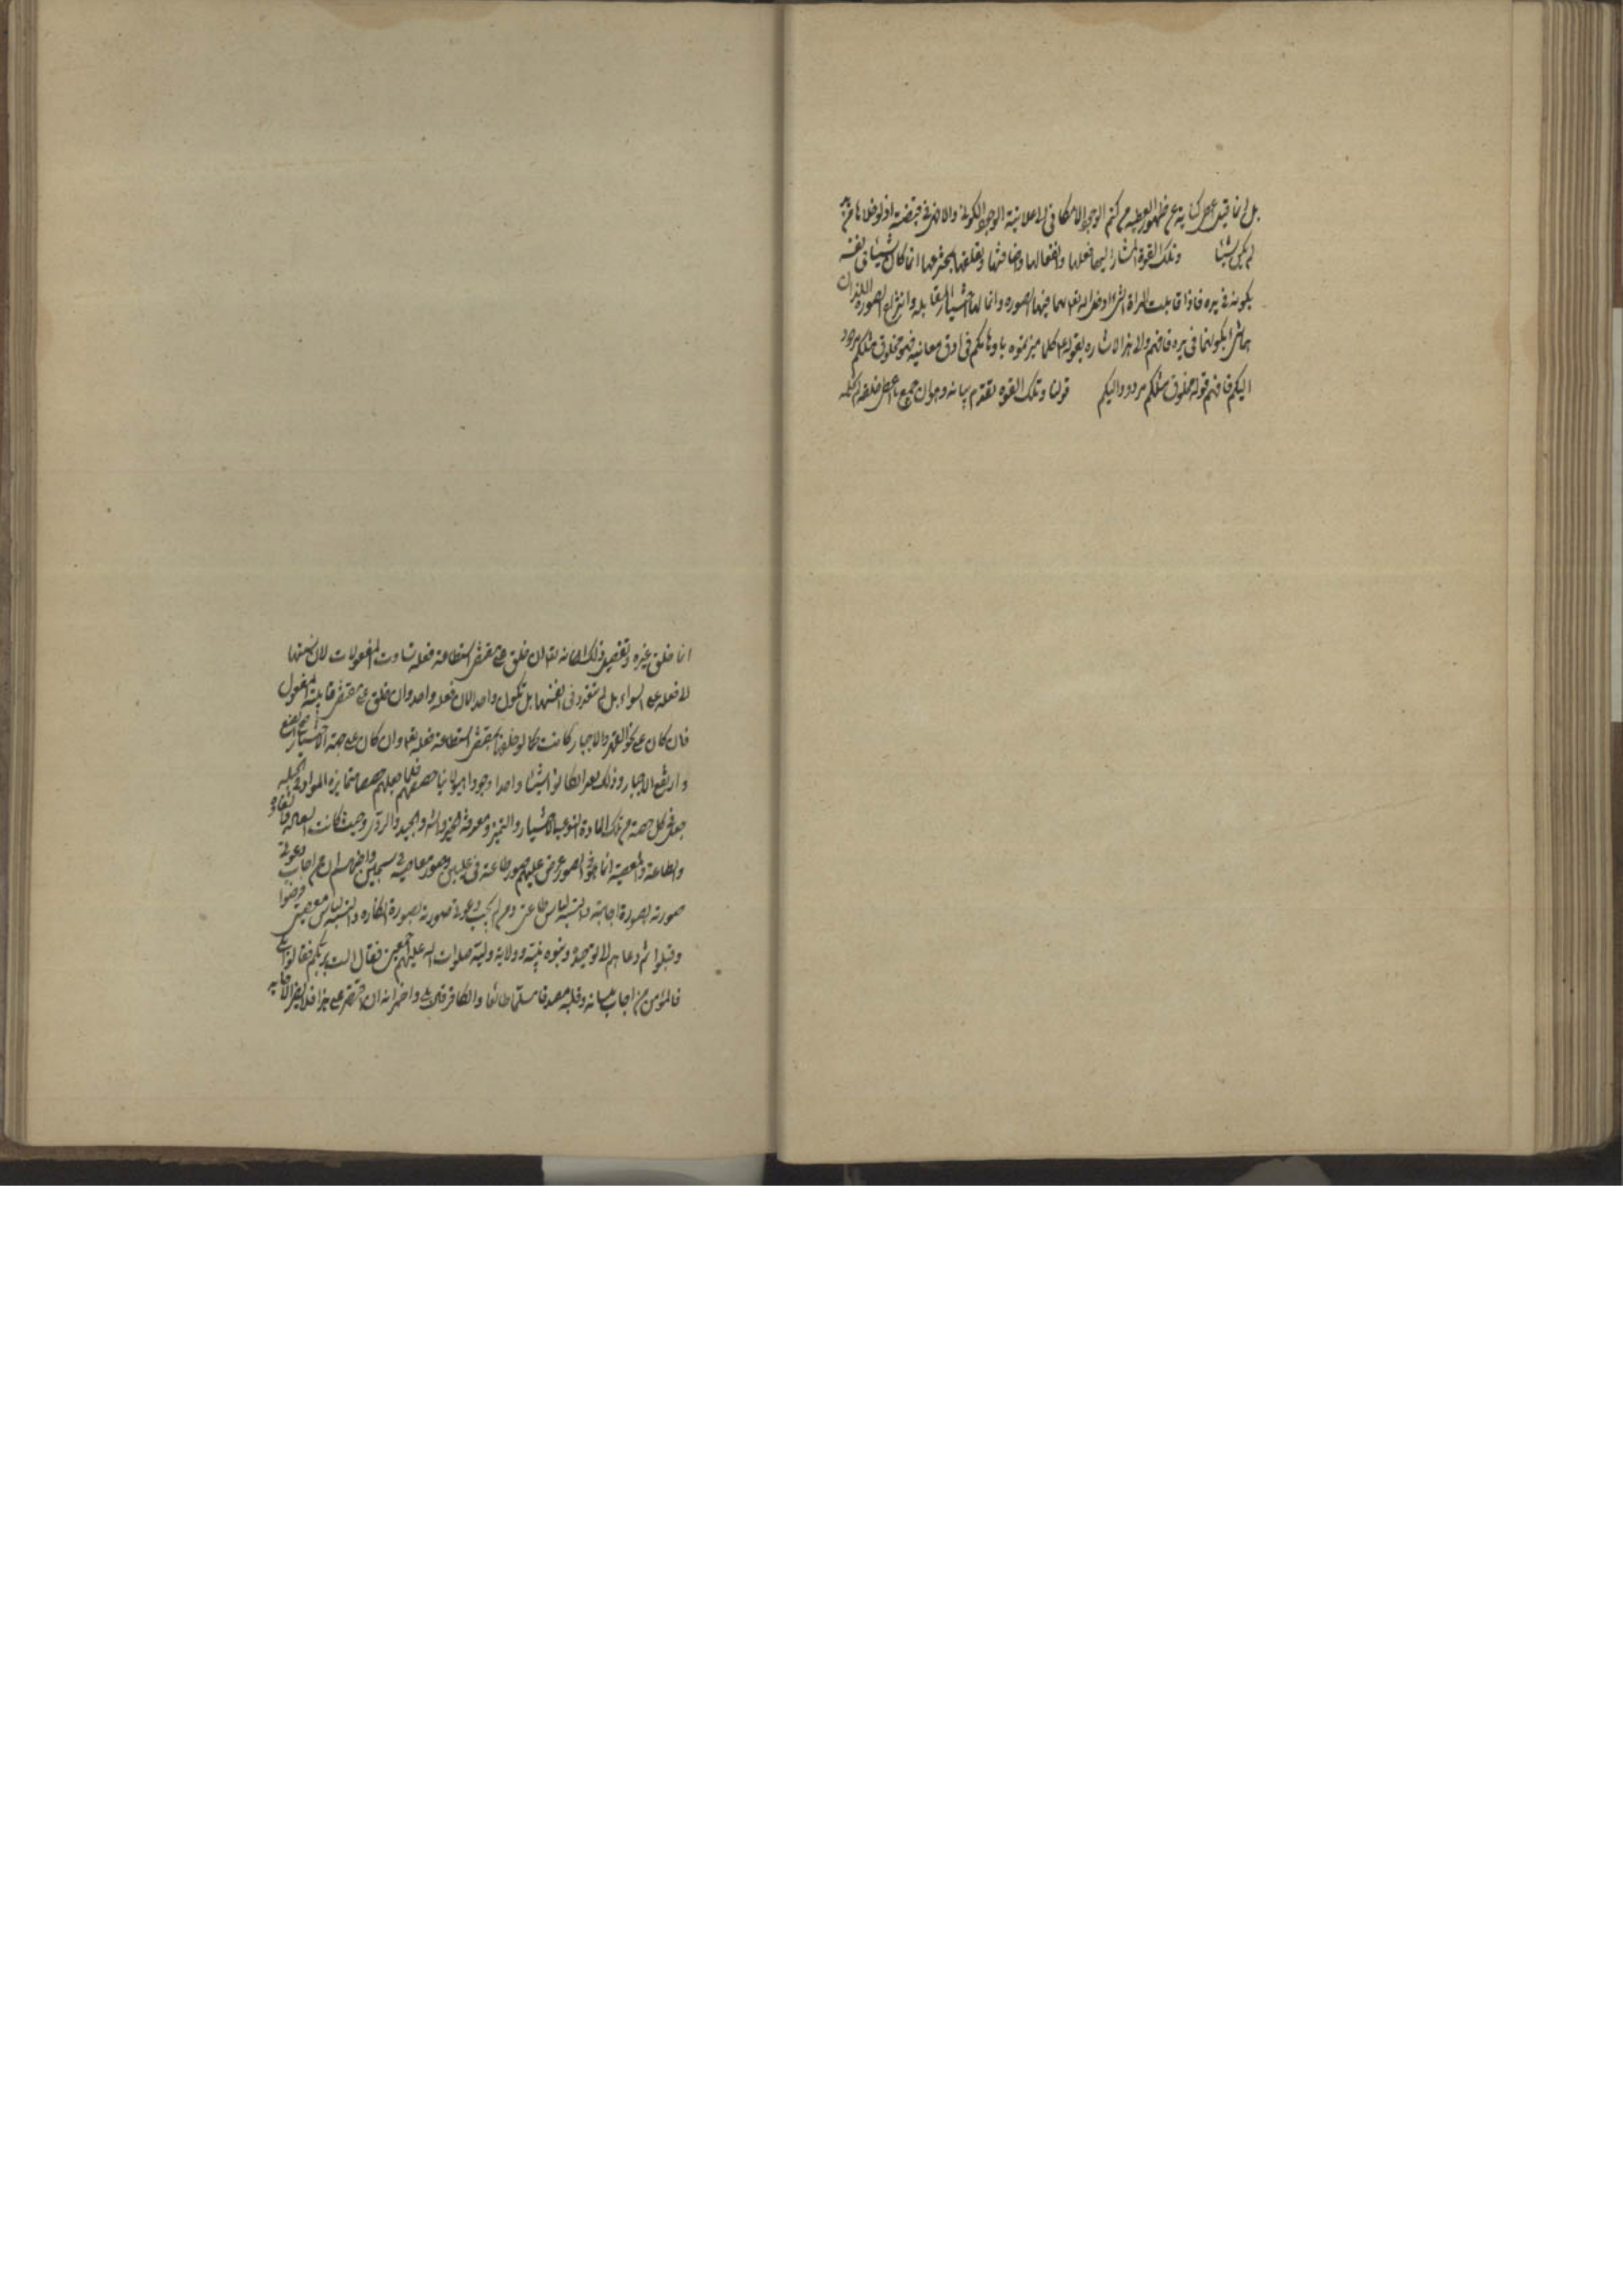 بل انما قيل اعطى كناية عن ظهور العطية من كتم الوجود الامكاني الى اعلانية الوجود الكوني والا فهي في قبضته اذ لو خلاها من يده
لم يكن شيئا وتلك القوة المشار اليها فعلها وانفعالها واضافتها وتعلقها بجزعها انما كان شيئا في نفسه
بكونه في يده فاذا قابلت المراة الشئ اوجد الله تعالى بهما فيها الصورة وانما لها اختيار المقابلة وانتزاع الصورة اللذان
هما شئ بكونهما في يده فافهم والى هذا الاشارة بقوله ع كلما ميزتموه باوهامكم في ادق معانيه فهو مخلوق مثلكم مردود
اليكم فافهم قوله مخلوق مثلكم مردود اليكم قولنا وتلك القوة تقدم بيانه وهو ان جميع ما اعطى خلقه
انما خلق غيره وتفصيل ذلك انه تعالى ان خلق على مقتضى استطاعة فعله تساوت المفعولات لان نسبتها
الى فعله على السواء بل لم تتعدد في انفسها بل تكون واحدا لان فعله واحد وان خلق على مقتضى قابلية المفعول
فان كان على نحو القهر والاجبار كانت كما لو خلقها بمقتضى استطاعة فعله تعالى وان كان على جهة الاختيار صح الصنع
وارتفع الاجبار وذلك بعد ان كانوا شيئا واحدا وجودا هيولانيا حصصهم فلما جعلهم حصصا متمايزة المواد في الجملة
جعل في كل حصة من تلك المادة النوعية الاختيار والتميز ومعرفة الخير والشر والجيد والردى وحيث كانت السعادة والشقاوة
والطاعة والمعصية انما هي في الصور عرض عليهم صور طاعته في عليين وصور معاصيه في سجين واخبرهم ان من اجاب دعوتي
صورته بصورة اجابته والبسته لباس طاعتي ومن لم يجب دعوتي صورته بصورة انكاره والبسته لباس معصيتي فرضوا
وقبلوا ثم دعاهم الى توحيده ونبوة نبيه وولاية وليه صلوات الله عليهم اجمعين فقال الست بربكم فقالوا بلى
فالمؤمن من اجاب بلسانه وقلبه مصدقا مسلما طائعا والكافر قال بلى واضمر انه ان اقتصر على هذا